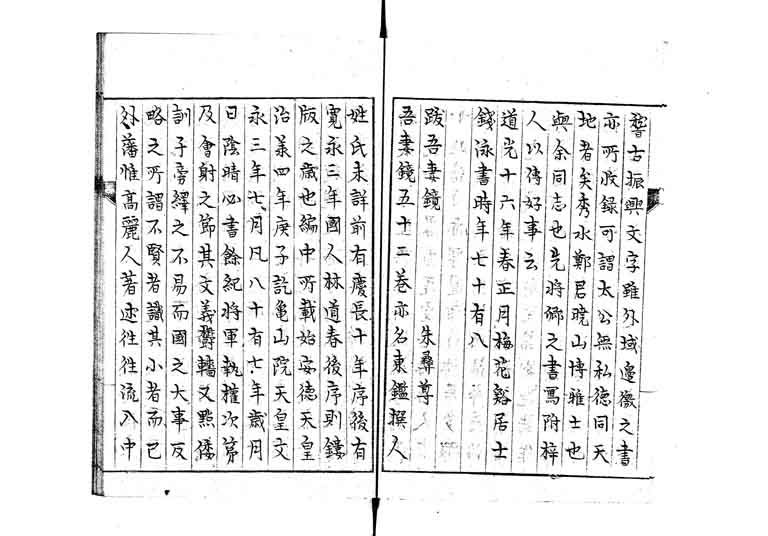 響古振興文字雖外域邊徼之書
亦所收録可謂太公無私德同天
地者矣秀水鄭君曉山博雅士也
與余同志也先將鄉之書寫附梓
人以傳好事云
道光十六年春正月梅花谿居士
錢泳書時年七十有八
跋吾妻鏡
朱彝尊
吾妻鏡五十二卷亦名東鑑撰人
姓氏未詳前有慶長十年序後有
寬永三年國人林道春後序則鏤
版之歳也編中所載始安德天皇
治羕四年庚子訖亀山院天皇文
永三年七月凡八十有七年歲月
日陰晴必書餘紀將軍執權次第
及會射之節其文義鬱轖又點倭
訓子旁繹之不易而國之大事反
略之所謂不賢者識其小者而已
外藩惟高麗人著述徃徃流入中